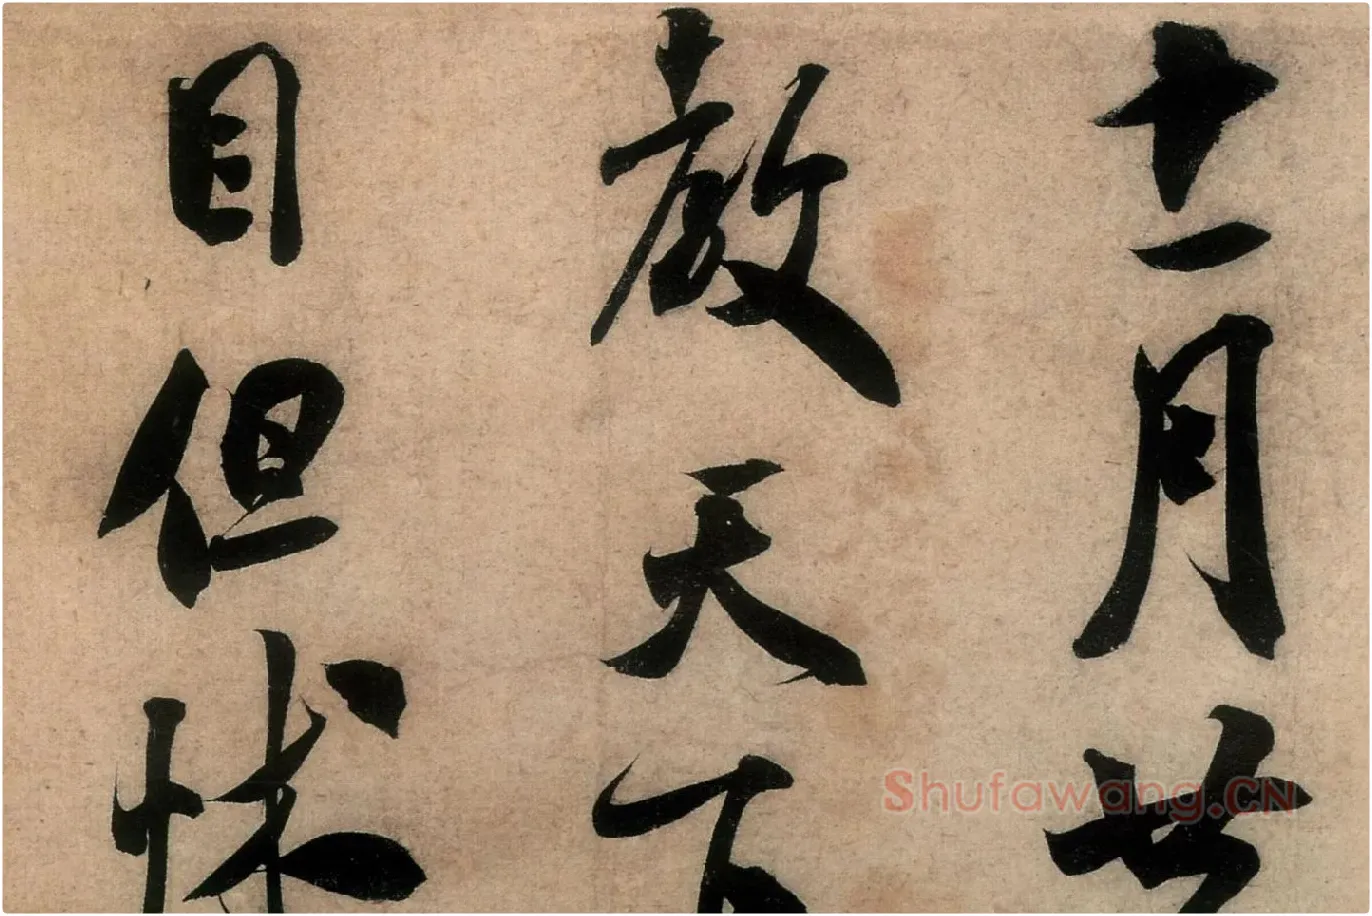 十一月廿
教天下
目但怵
Shufawang.CN